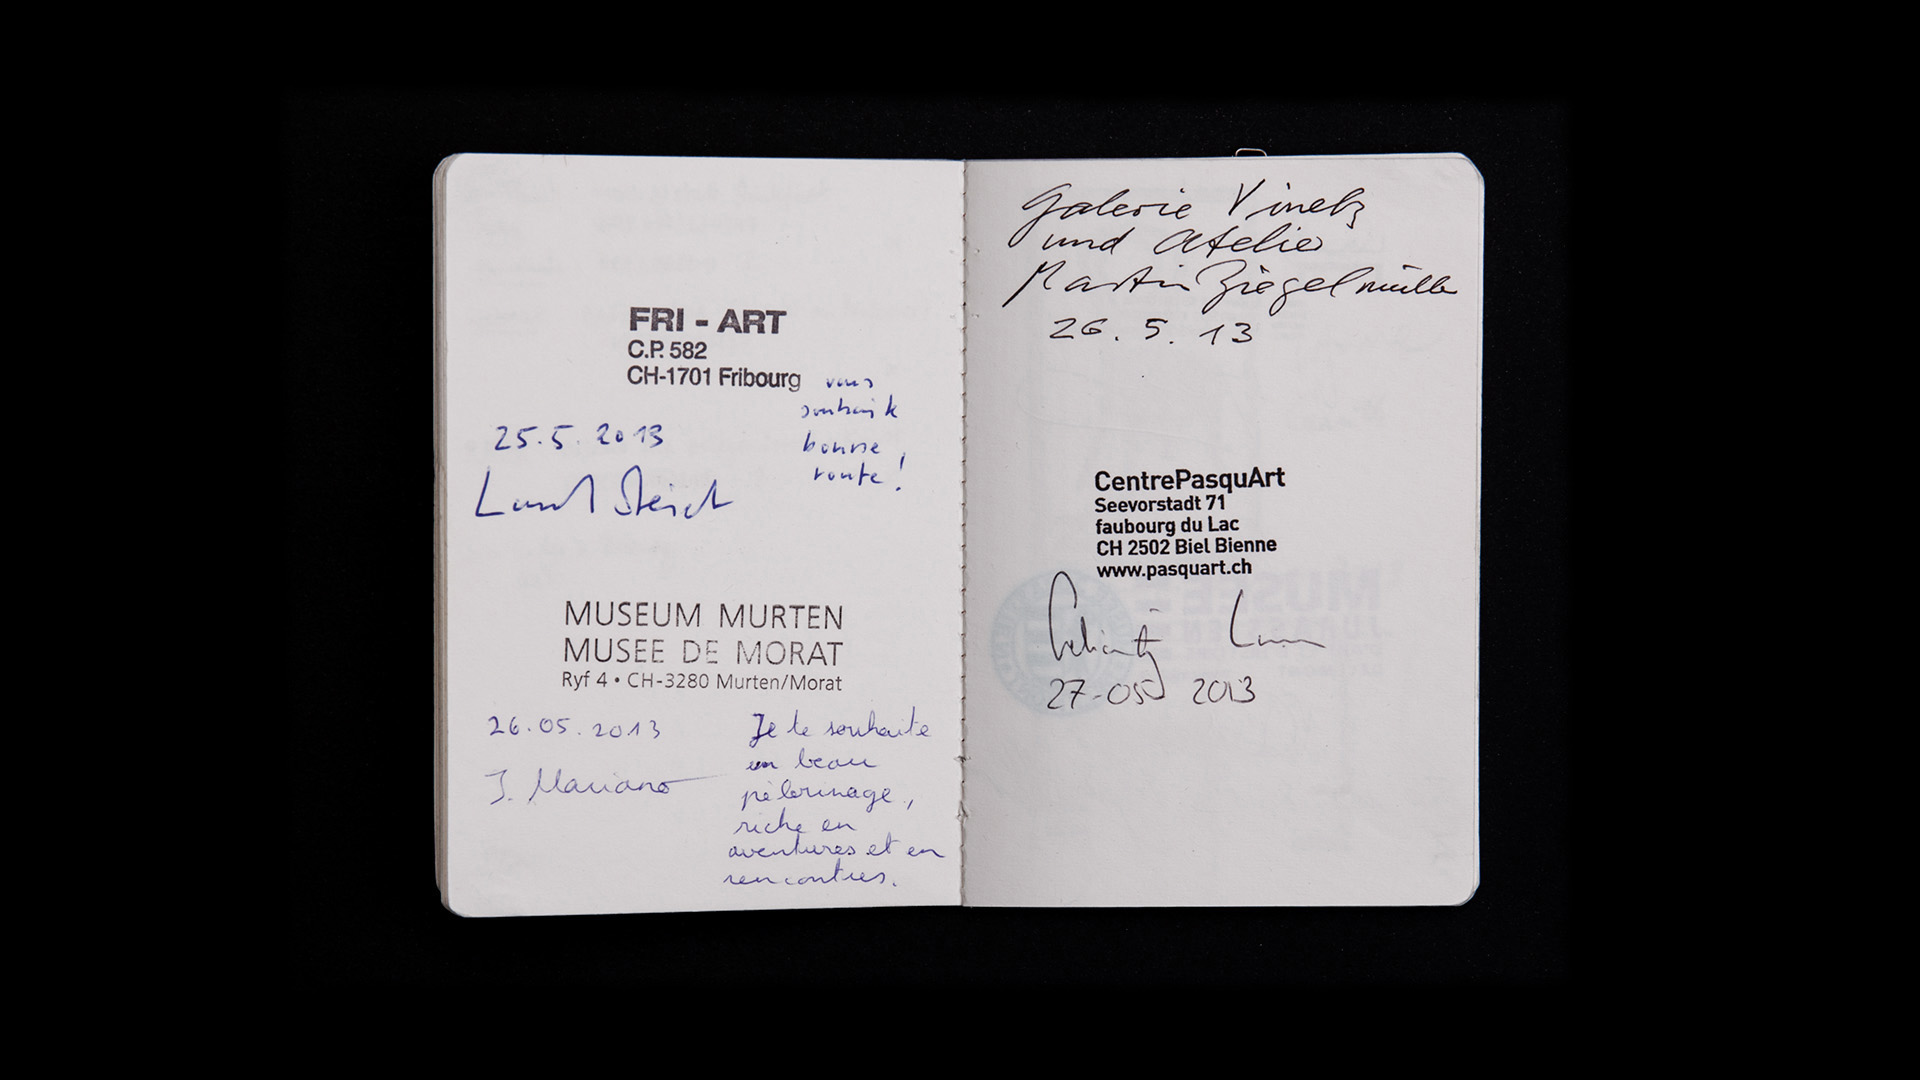 FRI - ART
C.P. 582
CH-1701 Fribourg
vous
souhaite
bonne
route!
25.5.2013
MUSEUM MURTEN
MUSEE DE MORAT
Ryf 4 • CH-3280 Murten/Morat
26.05.2013
J. Mariano
Je te souhaite
un beau
pèlerinage,
riche en
aventures et en
rencontres.
Galerie Vinelz
und Atelier
Martin Ziegelmüller
26. 5. 13
CentrePasquArt
Seevorstadt 71
faubourg du Lac
CH 2502 Biel Bienne
www.pasquart.ch
27-05 2013